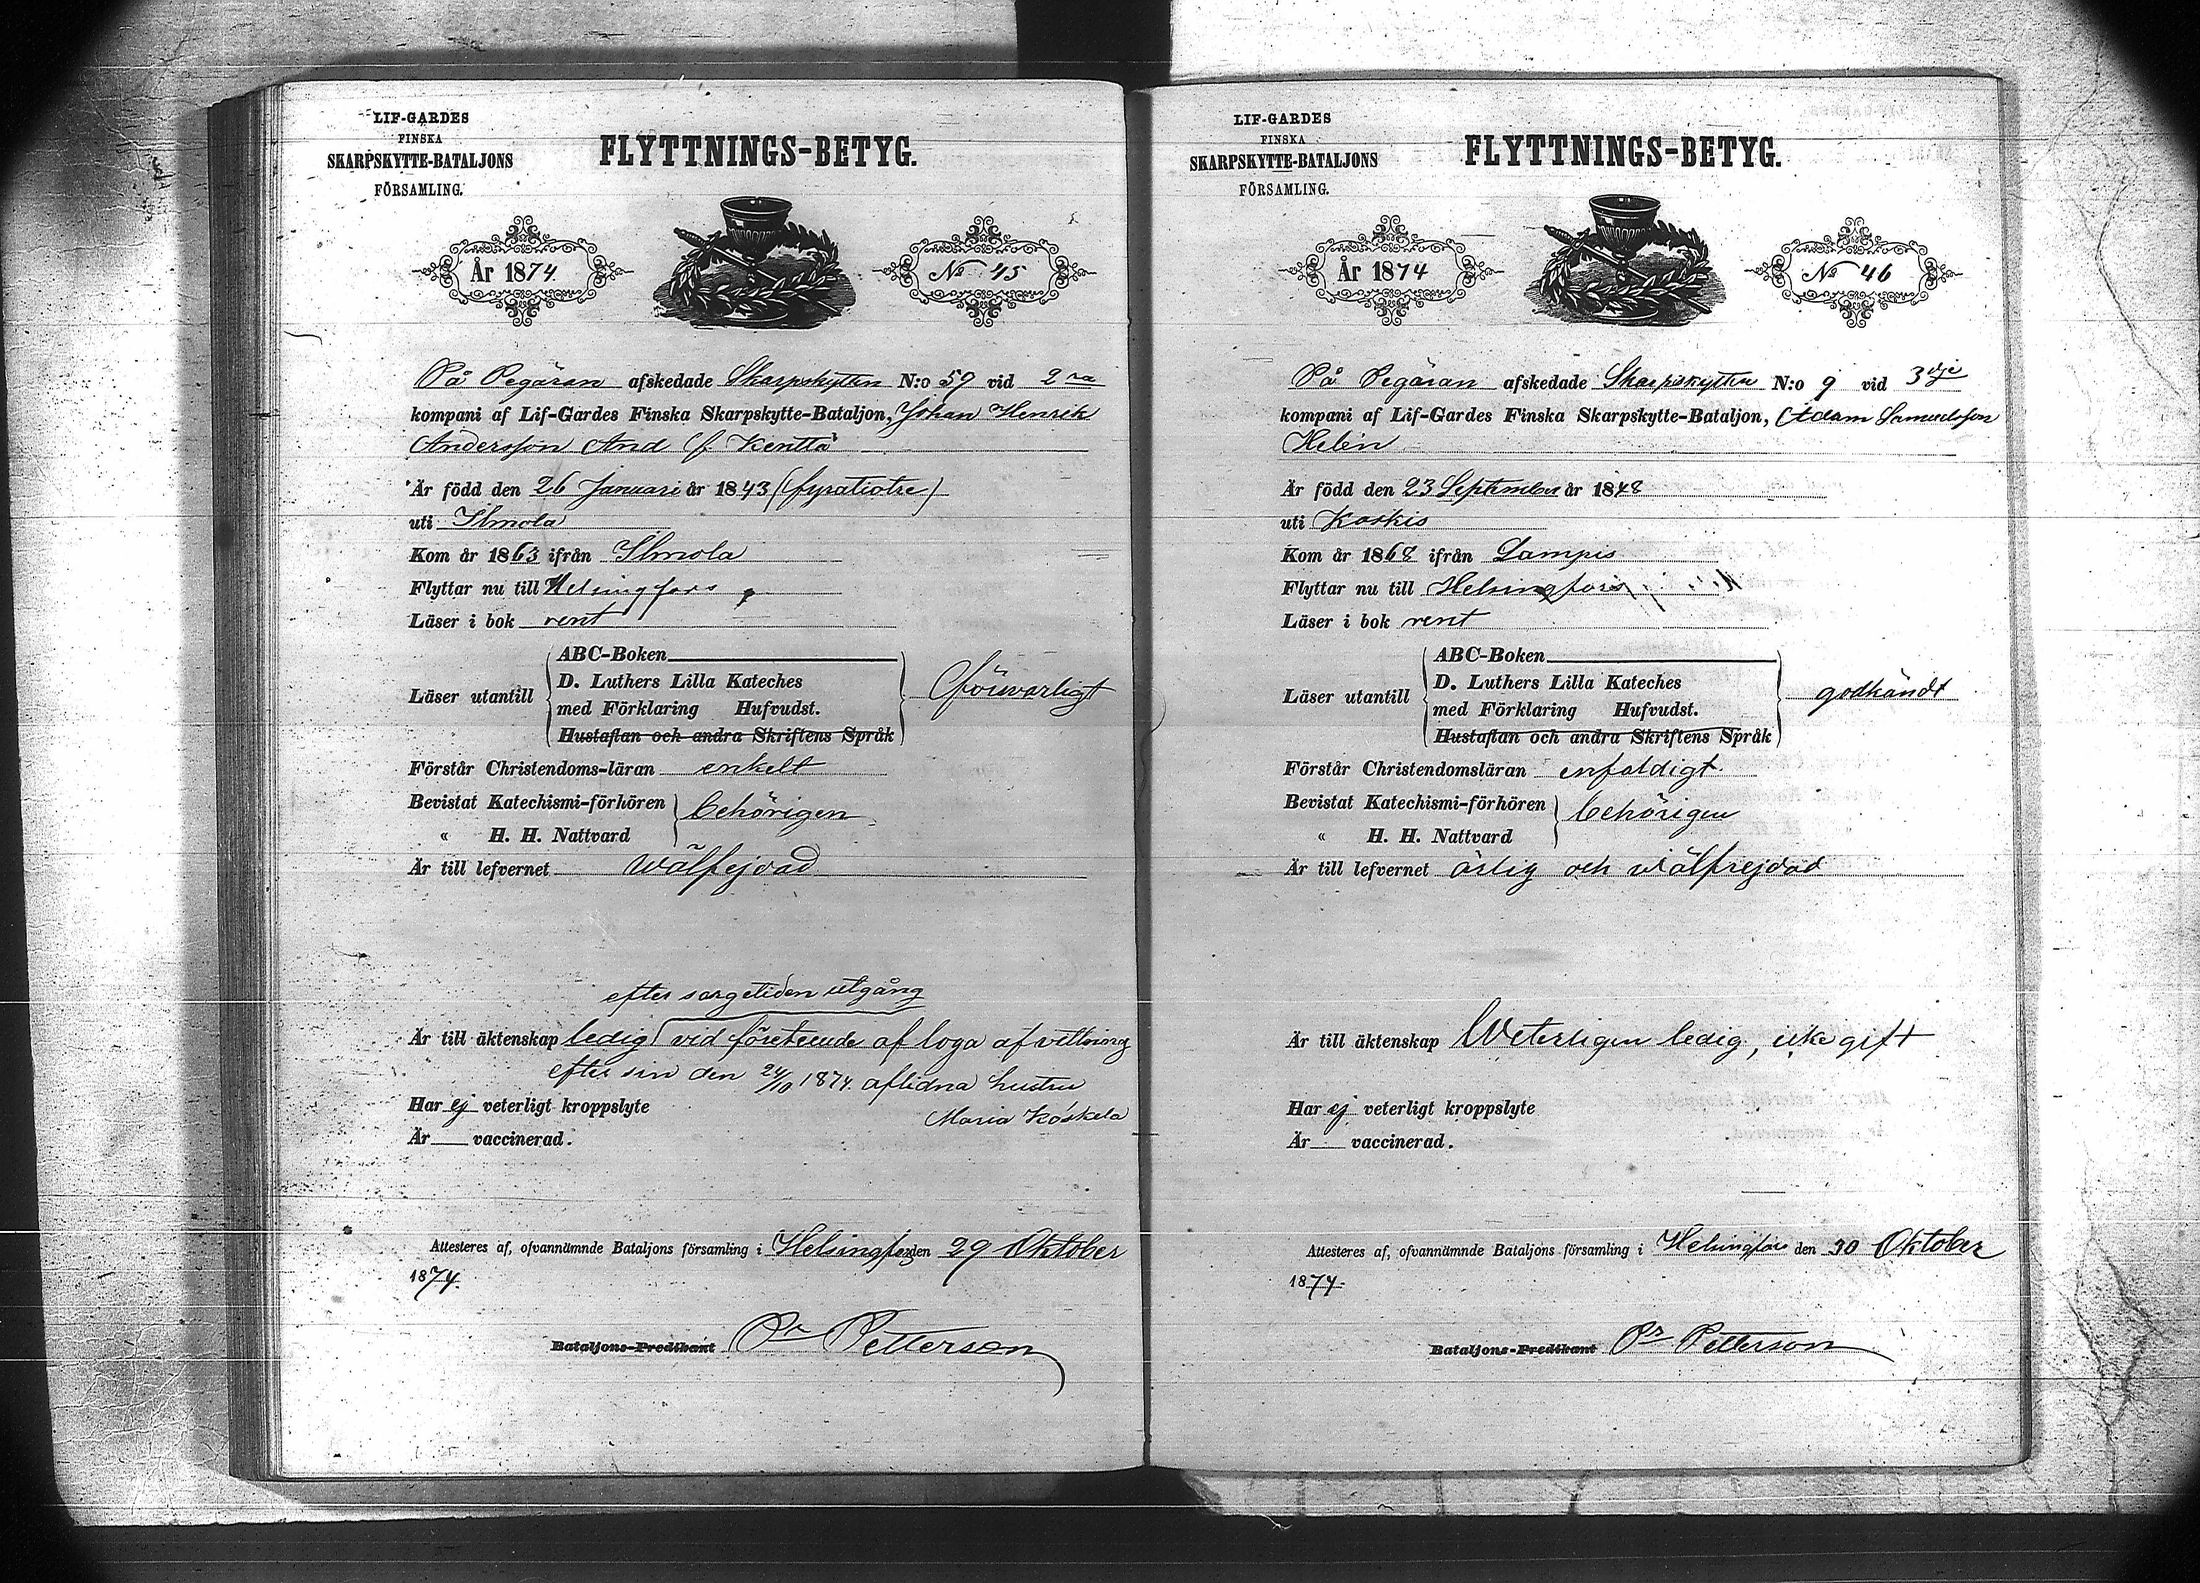 LIF-GARDES
FINSKA
SKARPSKYTTE-BATALJONS
FÖRSAMLING.
FLYTTNINGS-BETYG.
År 1874
No 45
På Begäran afskedade Skarpskytten N:o 59 vid 2ra
kompani af Lif-Gardes Finska Skarpskytte-Bataljon, Johan Henrik
Andersson And f. Kenttä
Är född den 26 Januari år 1843 (fyratiotre)
uti Ilmola
Kom år 1863 ifrån Ilmola
Flyttar nu till Helsingfors
Läser i bok rent
Läser utantill
ABC-Boken
D. Luthers Lilla Kateches
med Förklaring Hufvudst.
Hustaflan och andra Skriftens Språk
försvarligt
Förstår Christendoms-läran enkelt
Bevistat Katechismi-förhören
" H. H. Nattvard
behörigen
Är till lefvernet wälfrejdad
efter sorgetiden utgång
Är till äktenskap ledig vid företeende af loga afvittring
efter sin den 24/10 1874 aflidna hustru
Maria Koskela
Har ej veterligt kroppslyte
Är vaccinerad.
Attesteras af, ofvannämnde Bataljons församling i Helsingfors den 29 Oktober
1874.
Bataljons-Predikant Pr Petterson
LIF-GARDES
FINSKA
SKARPSKYTTE-BATALJONS
FÖRSAMLING.
FLYTTNINGS-BETYG.
År 1874
No 46
På Begäran afskedade Skarpskytten N:o 9 vid 3dje
kompani af Lif-Gardes Finska Skarpskytte-Bataljon, Adam Samuelsson
Helén
Är född den 23 September år 1848
uti Koskis
Kom år 1868 ifrån Lampis
Flyttar nu till Helsingfors
Läser i bok rent
Läser utantill
ABC-Boken
D. Luthers Lilla Kateches
med Förklaring Hufvudst.
Hustaflan och andra Skriftens Språk
godkändt
Förstår Christendomsläran enfaldigt
Bevistat Katechismi-förhören
" H. H. Nattvard
behörigen
Är till lefvernet ärlig och wälfrejdad
Är till äktenskap Weterligen ledig, icke gift
Har ej veterligt kroppslyte
Är vaccinerad.
Attesteres af, ofvannämnde Bataljons församling i Helsingfors den 30 Oktober
1874.
Bataljons-Predikant Pr Petterson